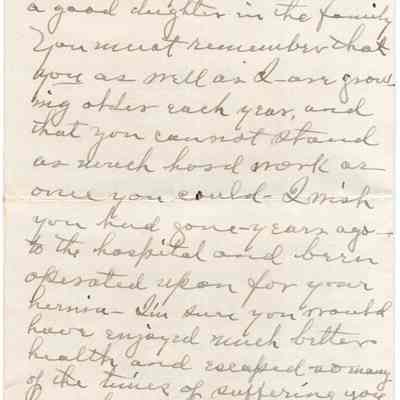 a good daughter in the family
You must remember that
you as well as I are grow-
ing older each year, and
that you cannot stand
as much hard work as
once you could - I wish
you had gone - years ago -
to the hospital and been
operated upon for your
hernia - I'm sure you would
have enjoyed much better
health, and escaped so many
of the times of suffering you